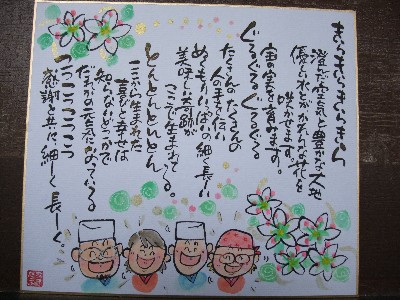 きらきらきらきら
澄んだ空気と豊かな大地
優しい水とが かれんな花を
咲かせます。
ぐるぐるぐるぐる
宝の実を育みます。
たくさんのたくさんの
人の手を伝い
ぬくもりいっぱいの細く長ーい
美味しい奇跡が
ここで生まれてる
とんとんとんとん
ここから生まれた
喜びと幸せは
知らないどこかで
だれかの元気になっている
つつこつこつこつ
感謝と共に 細ーく 長ーく。